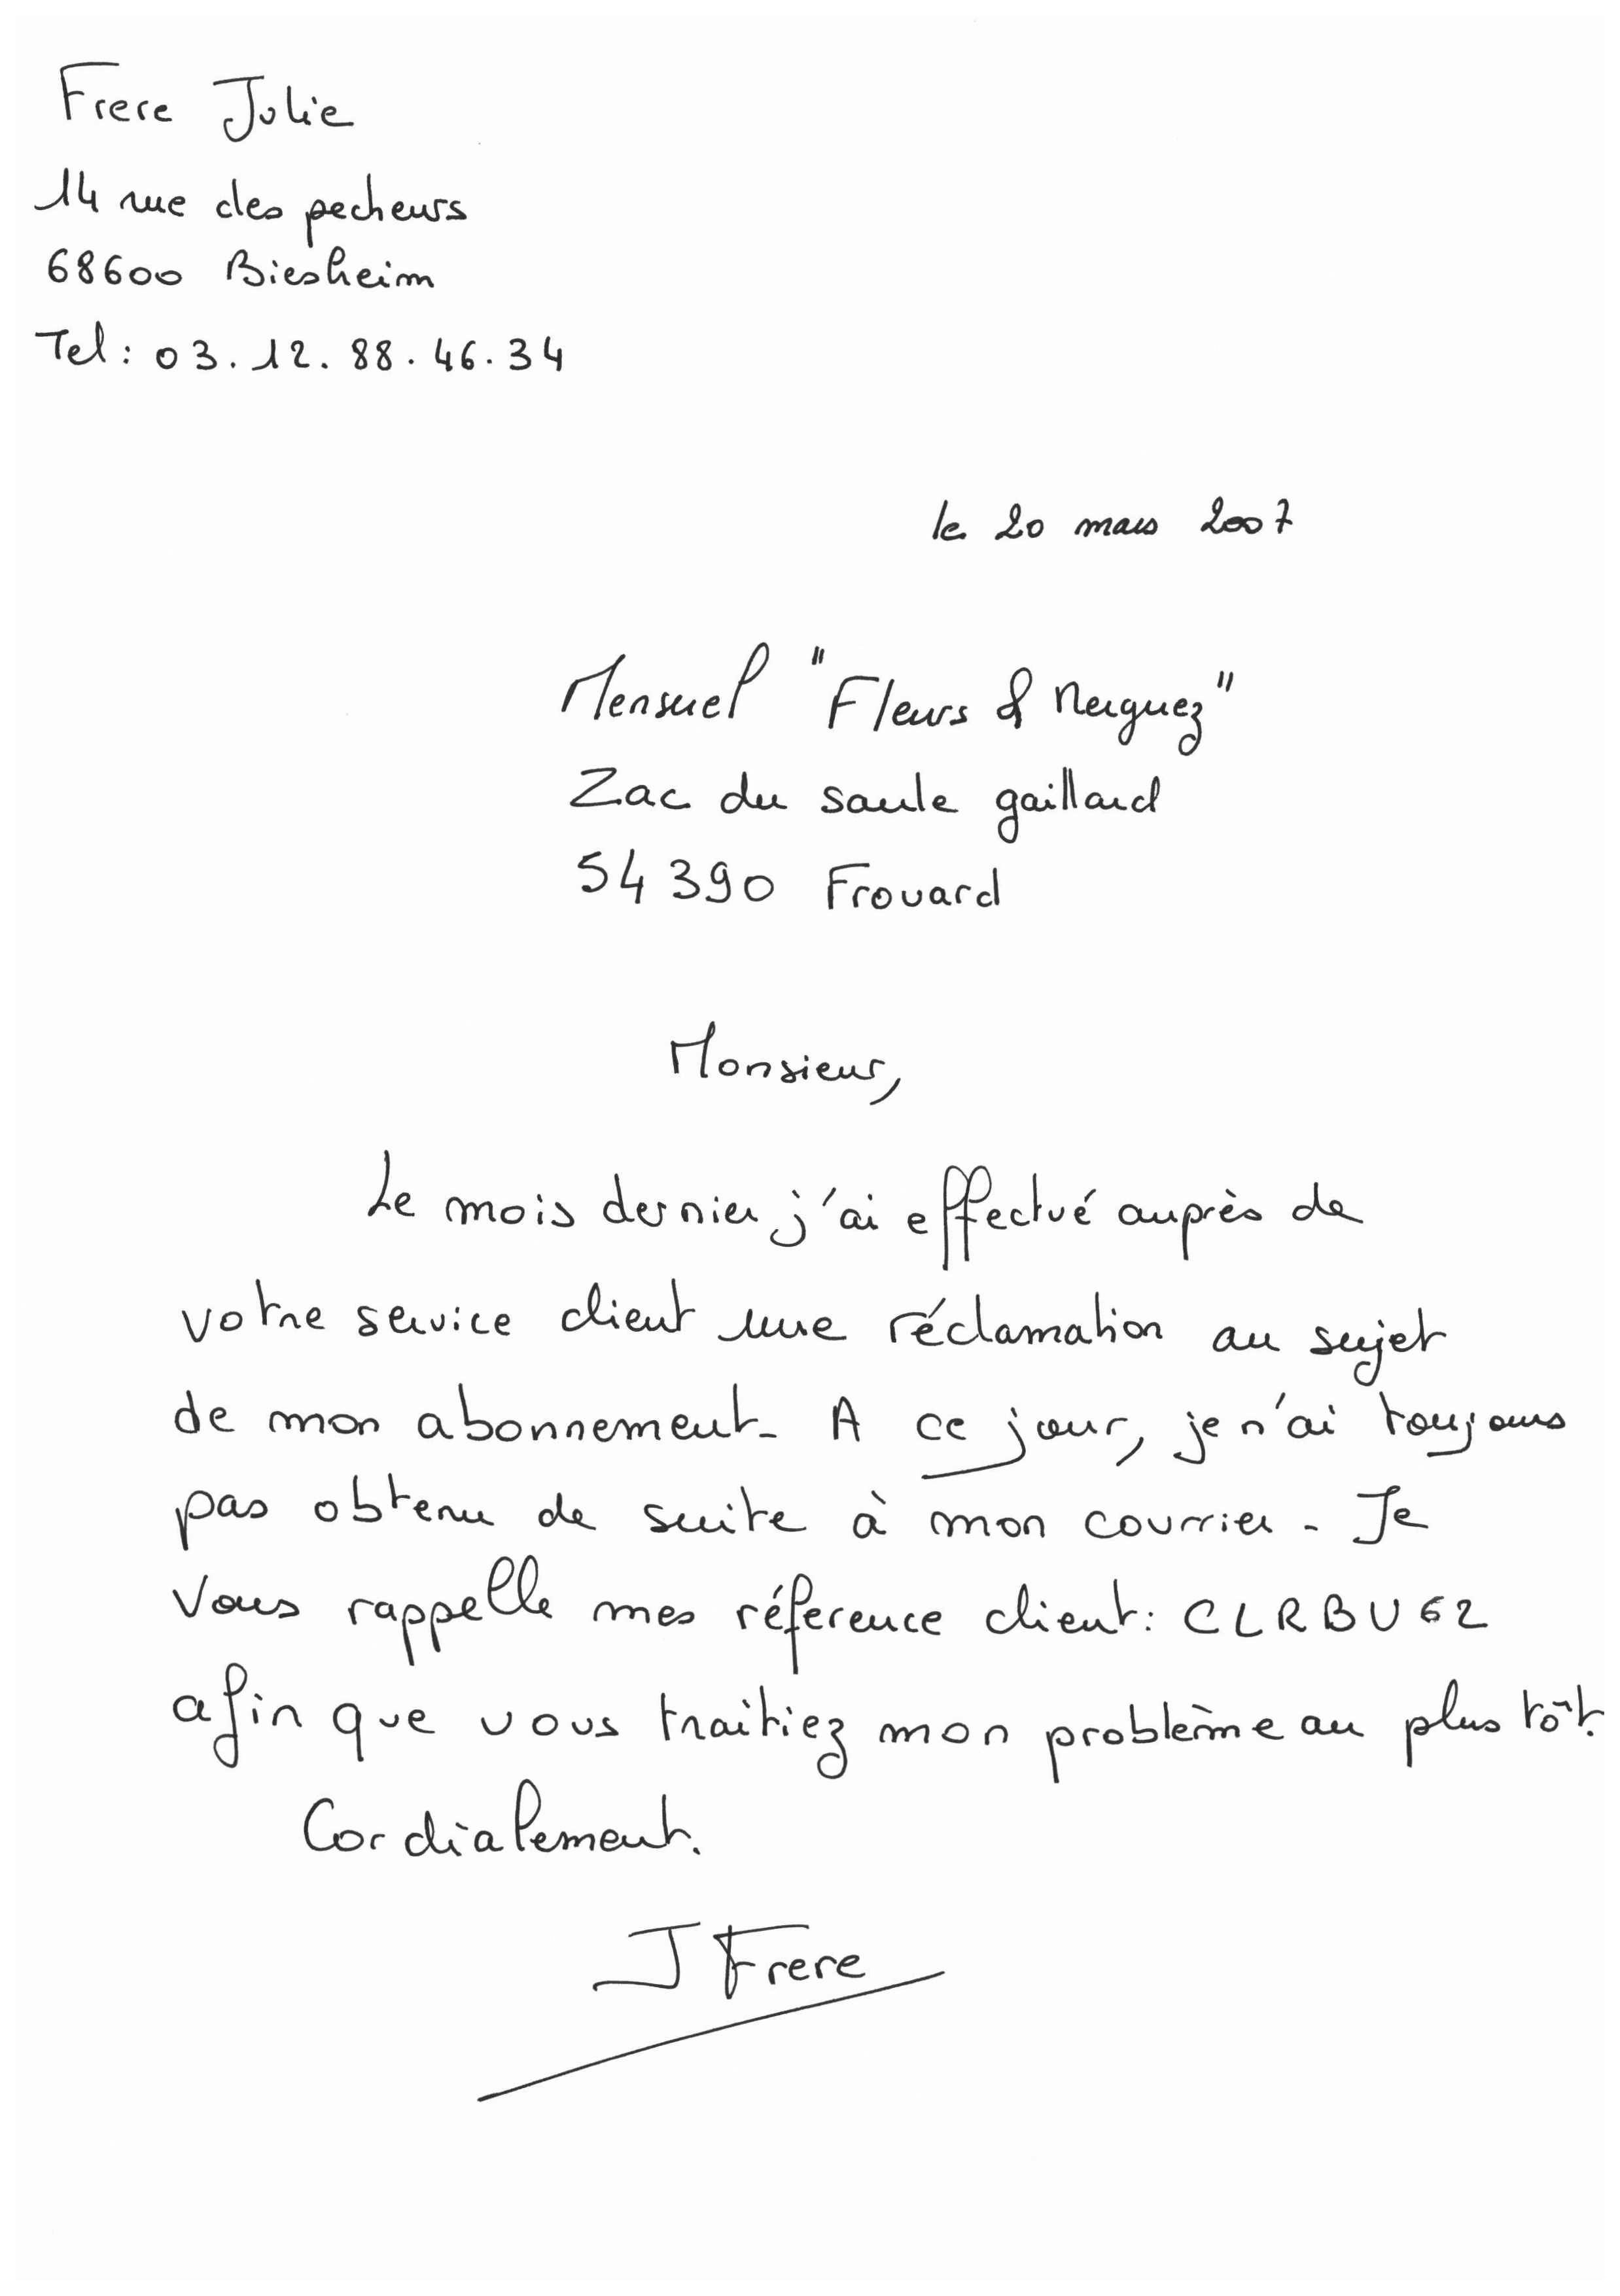 Frere Julie
14 rue des pecheurs
68600 Biesheim
Tel : 03.12.88.46.34
le 20 mars 2007
Mensuel "Fleurs & Merguez"
Zac du saule gaillard
54390 Frouard
Monsieur,
Le mois dernier j'ai effectué auprès de
votre service client une réclamation au sujet
de mon abonnement. A ce jour, je n'ai toujours
pas obtenu de suite à mon courrier. Je
vous rappelle mes réference client : CLRBU62
afin que vous traitiez mon problème au plus tôt.
Cordialement.
J Frere